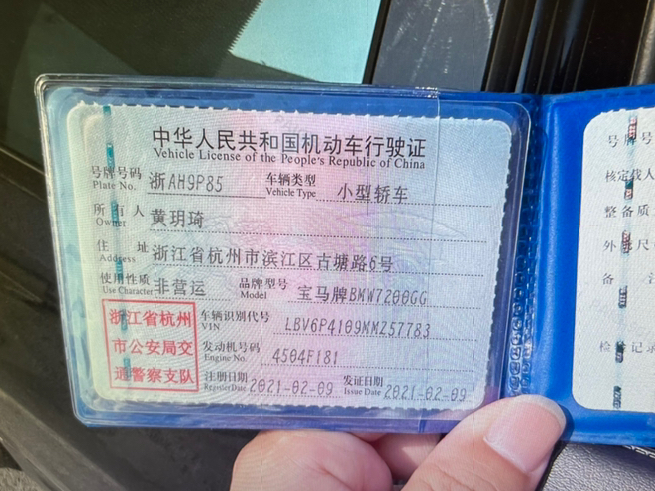 中华人民共和国机动车行驶证
Vehicle License of the People's Republic of China
号牌号码 Plate No. 浙AH9P85 车辆类型 Vehicle Type 小型轿车
所有人 Owner 黄玥琦
住址 Address 浙江省杭州市滨江区古塘路6号
使用性质 Use Character 非营运 品牌型号 Model 宝马牌BMW7200GG
浙江省杭州
市公安局交
通警察支队
车辆识别代号 VIN LBV6P4109MMZ57783
发动机号码 Engine No. 4504F181
注册日期 Register Date 2021-02-09 发证日期 Issue Date 2021-02-09
号牌号
核定载人
整备质
外廓尺
备
检验记录